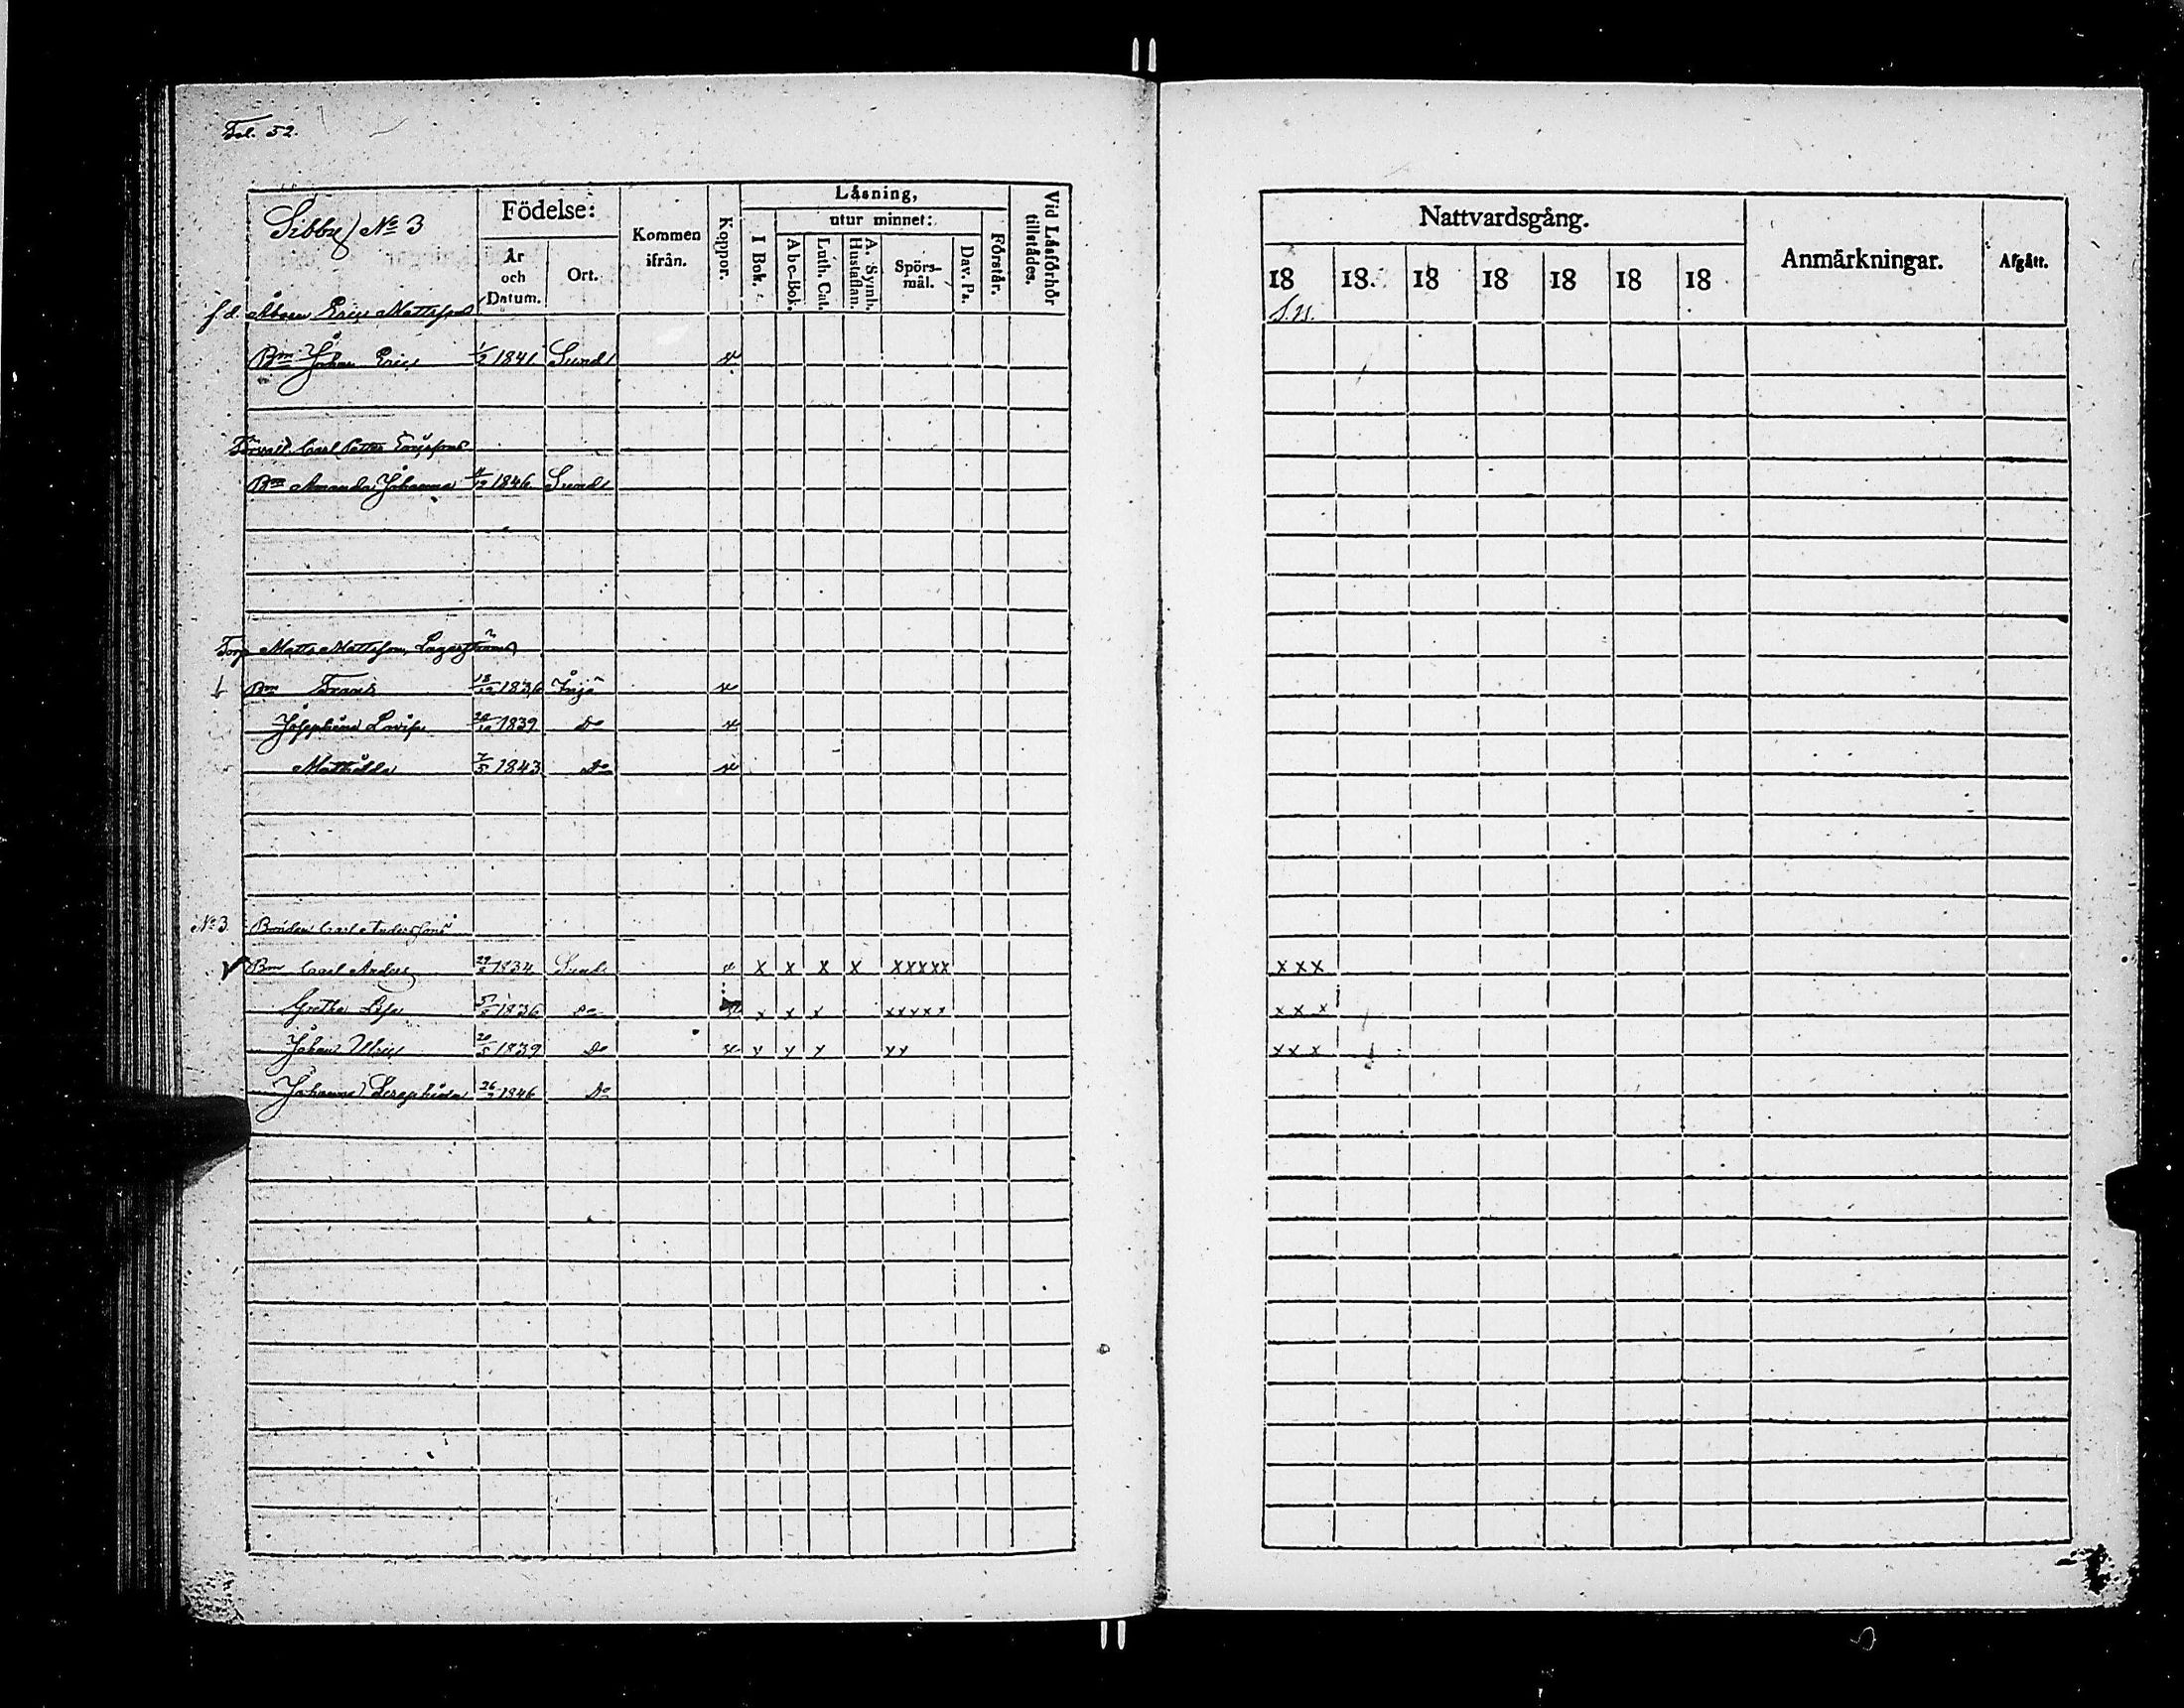 Fol. 52.
Sibby No 3
Födelse:
År och Datum.
Ort.
Kommen ifrån.
Koppor.
Läsning,
utur minnet:
I Bok.
Abc-Bok.
Luth. Cat.
A. Symb. Hustaflan.
Spörs-mål.
Dav. Ps.
Förstår.
Vid Läsförhör tillstädes.
f.d. Åboen Eric Mattssons
Bn Johan Eric 1/2 1841 Sund v
Carl Petter Ericssons
Bn Amanda Johanna 1846 Sund
Torp Matts Mattsson Lagerströms
Bn Frans 18/12 1836 v
Josephina Lovisa 1839 Do v
Mathilda 7/5 1843 Do v
No 3 Bonden Carl Anderssons
Bn Carl Anders 1834 Sund v x x x x xxxxx
Gretha Lisa 1836 Do x x x xxxxx
Johan Ulric 20/5 1839 Do v x x x xx
Johanna Seraphida 26 1846 Do
Nattvardsgång.
Anmärkningar.
Afgått.
18 18 18 18 18 18 18
x x x
x x x
x x x